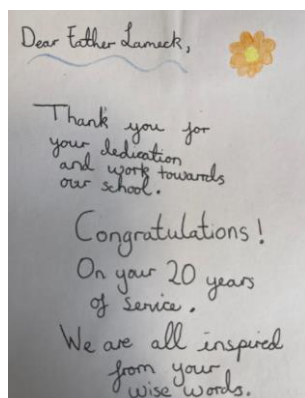 Dear Father Lameck,
Thank you for
your dedication
and work towards
our school.
Congratulations!
On your 20 years
of service.
We are all inspired
from your
wise words.